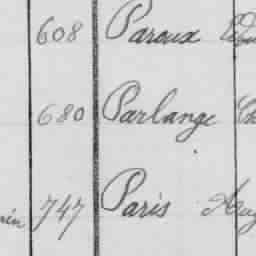 608 Paroux
680 Parlange
747 Paris